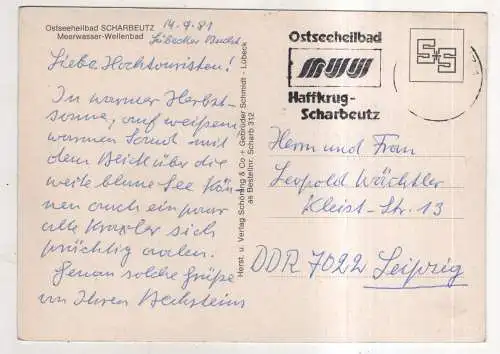 Ostseeheilbad SCHARBEUTZ
Meerwasser-Wellenbad
14.9.81
Lübecker Bucht
Liebe Hochtouristen!
In warmer Herbst-
sonne, auf weißem,
warmen Sand mit
dem Blick über die
weite blaue See kön-
nen auch ein paar
alte Kraxler sich
prächtig aalen.
Genau solche Grüße
von Ihren Bechsteins
Herst. u. Verlag Schöning & Co + Gebrüder Schmidt - Lübeck
Bestellnr. Scharb 312
Ostseeheilbad
Haffkrug-
Scharbeutz
Herrn und Frau
Leopold Wächtler
Kleist-Str. 13
DDR 7022 Leipzig